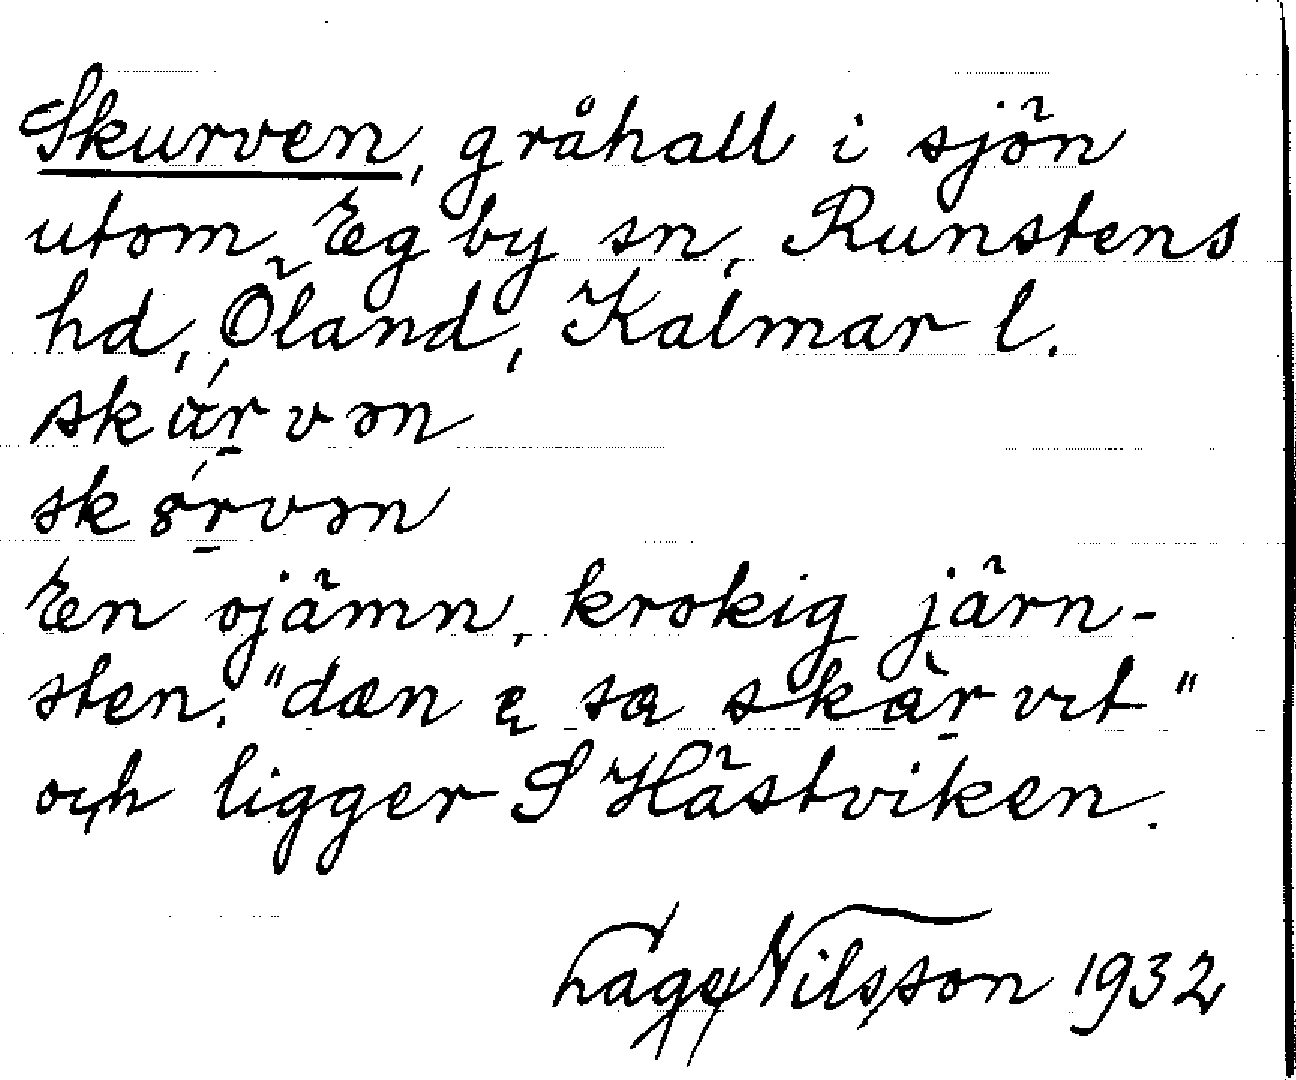 Skurven, gråhall i sjön
utom Egby sn, Runstens
hd, Öland, Kalmar l.
skúrvən
skórvən
En ojämn, krokig järn-
sten. "dæn ę sa skàrvıt"
och ligger S Hästviken.
Lage Nilsson 1932